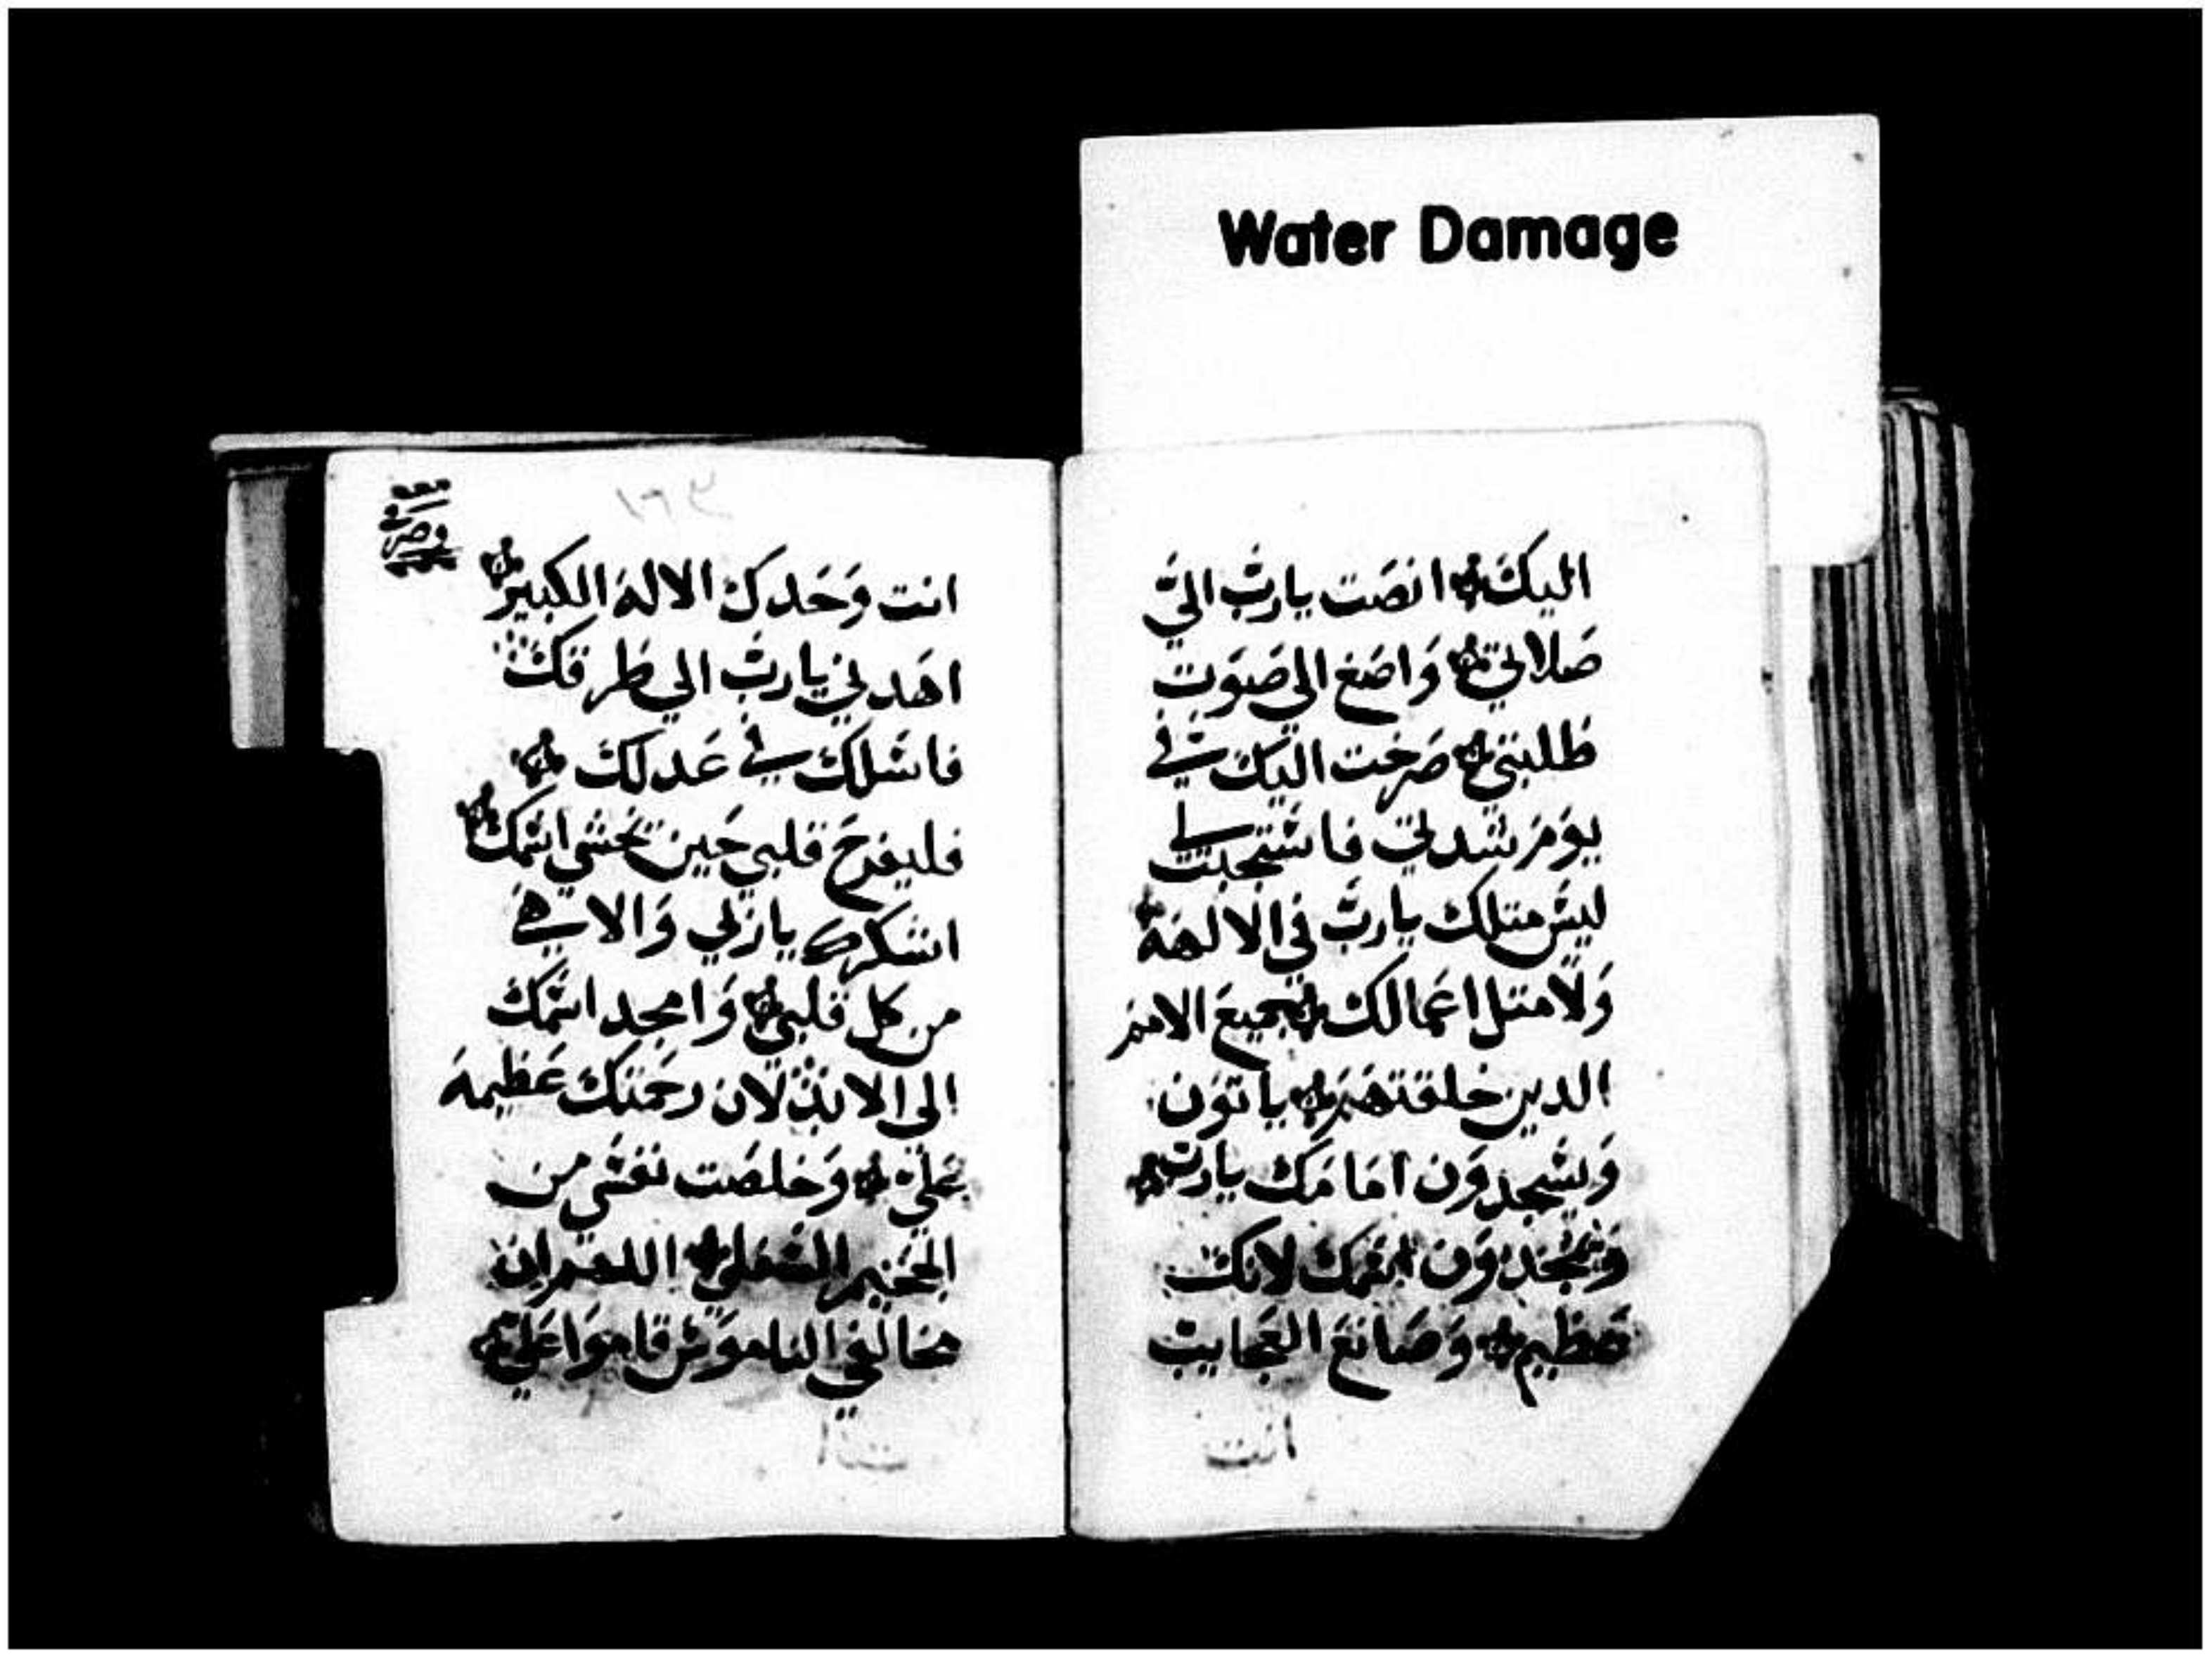 Water Damage
اليك انصت يارب الي
صلاتي واصغ الي صوت
طلبتي صرخت اليك في
يومر شدتي فاستجبت لي
ليس متلك يارب في الالهه
ولا متل اعمالك جميع الامم
الدين خلقتهم ياتون
ويسجدون امامك يارب
ويمجدون اسمك لانك
عظيم وصانع العجايب
انت
انت وحدك الاله الكبير
اهدني يارب الي طرقك
فاسلك في عدلك
فليفرح قلبي حين يخشي اسمك
اشكرك ياربي والاهي
من كل قلبي وامجد اسمك
الي الابد لان رحمتك عظيمه
علي وخلصت نفسي من
الجحيم السفلي اللهم ان
مخالفي الناموس قاموا علي